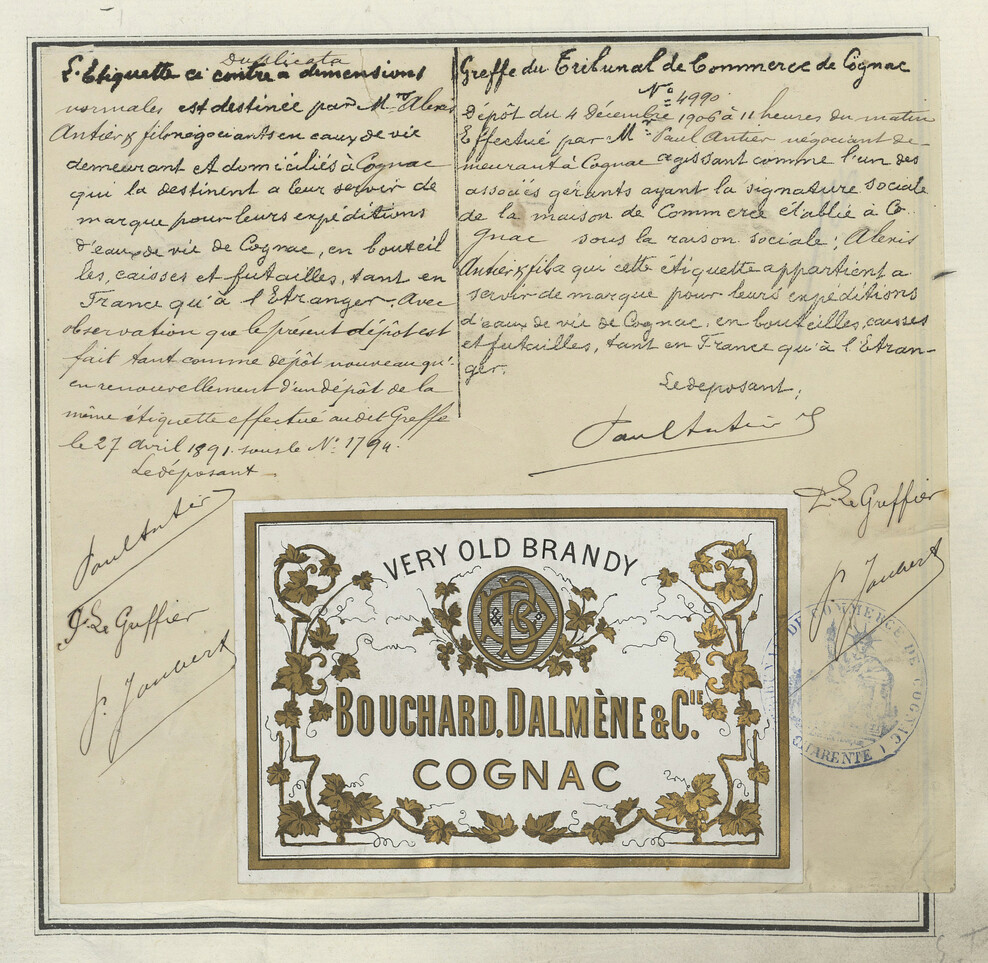 Duplicata
L'Etiquette ci contre a dimensions
normales est destinée par Mrs Alexis
Antier & fils négociants en eaux de vie
demeurant et domiciliés à Cognac
qui la destinent a leur servir de
marque pour leurs expéditions
d'eaux de vie de Cognac, en bouteil
les, caisses et futailles, tant en
France qu'à l'Etranger. Avec
observation que le présent dépôt est
fait tant comme dépôt nouveau qu'
en renouvellement d'un dépôt de la
même étiquette effectué au dit Greffe
le 27 avril 1891 sous le No 1794.
Le déposant
Paul Antier
P. Le Greffier
P. Joubert
Greffe du Tribunal de Commerce de Cognac
No 4990
Dépôt du 4 Décembre 1906 à 11 heures du matin
Effectué par Mr Paul Antier négociant de-
meurant à Cognac agissant comme l'un des
associés gérants ayant la signature sociale
de la maison de Commerce établie à Co
gnac sous la raison sociale; Alexis
Antier & fils a qui cette étiquette appartient a
servir de marque pour leurs expéditions
d'eaux de vie de Cognac, en bouteilles, caisses
et futailles, tant en France qu'à l'Etran-
ger.
Le deposant,
Paul Antier
P. Le Greffier
P. Joubert
VERY OLD BRANDY
BOUCHARD, DALMÈNE & CIE.
COGNAC
DE COMMERCE DE COGNAC
CHARENTE